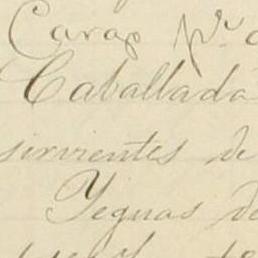 Caras
Caballada
sirvientes de
Yeguas de